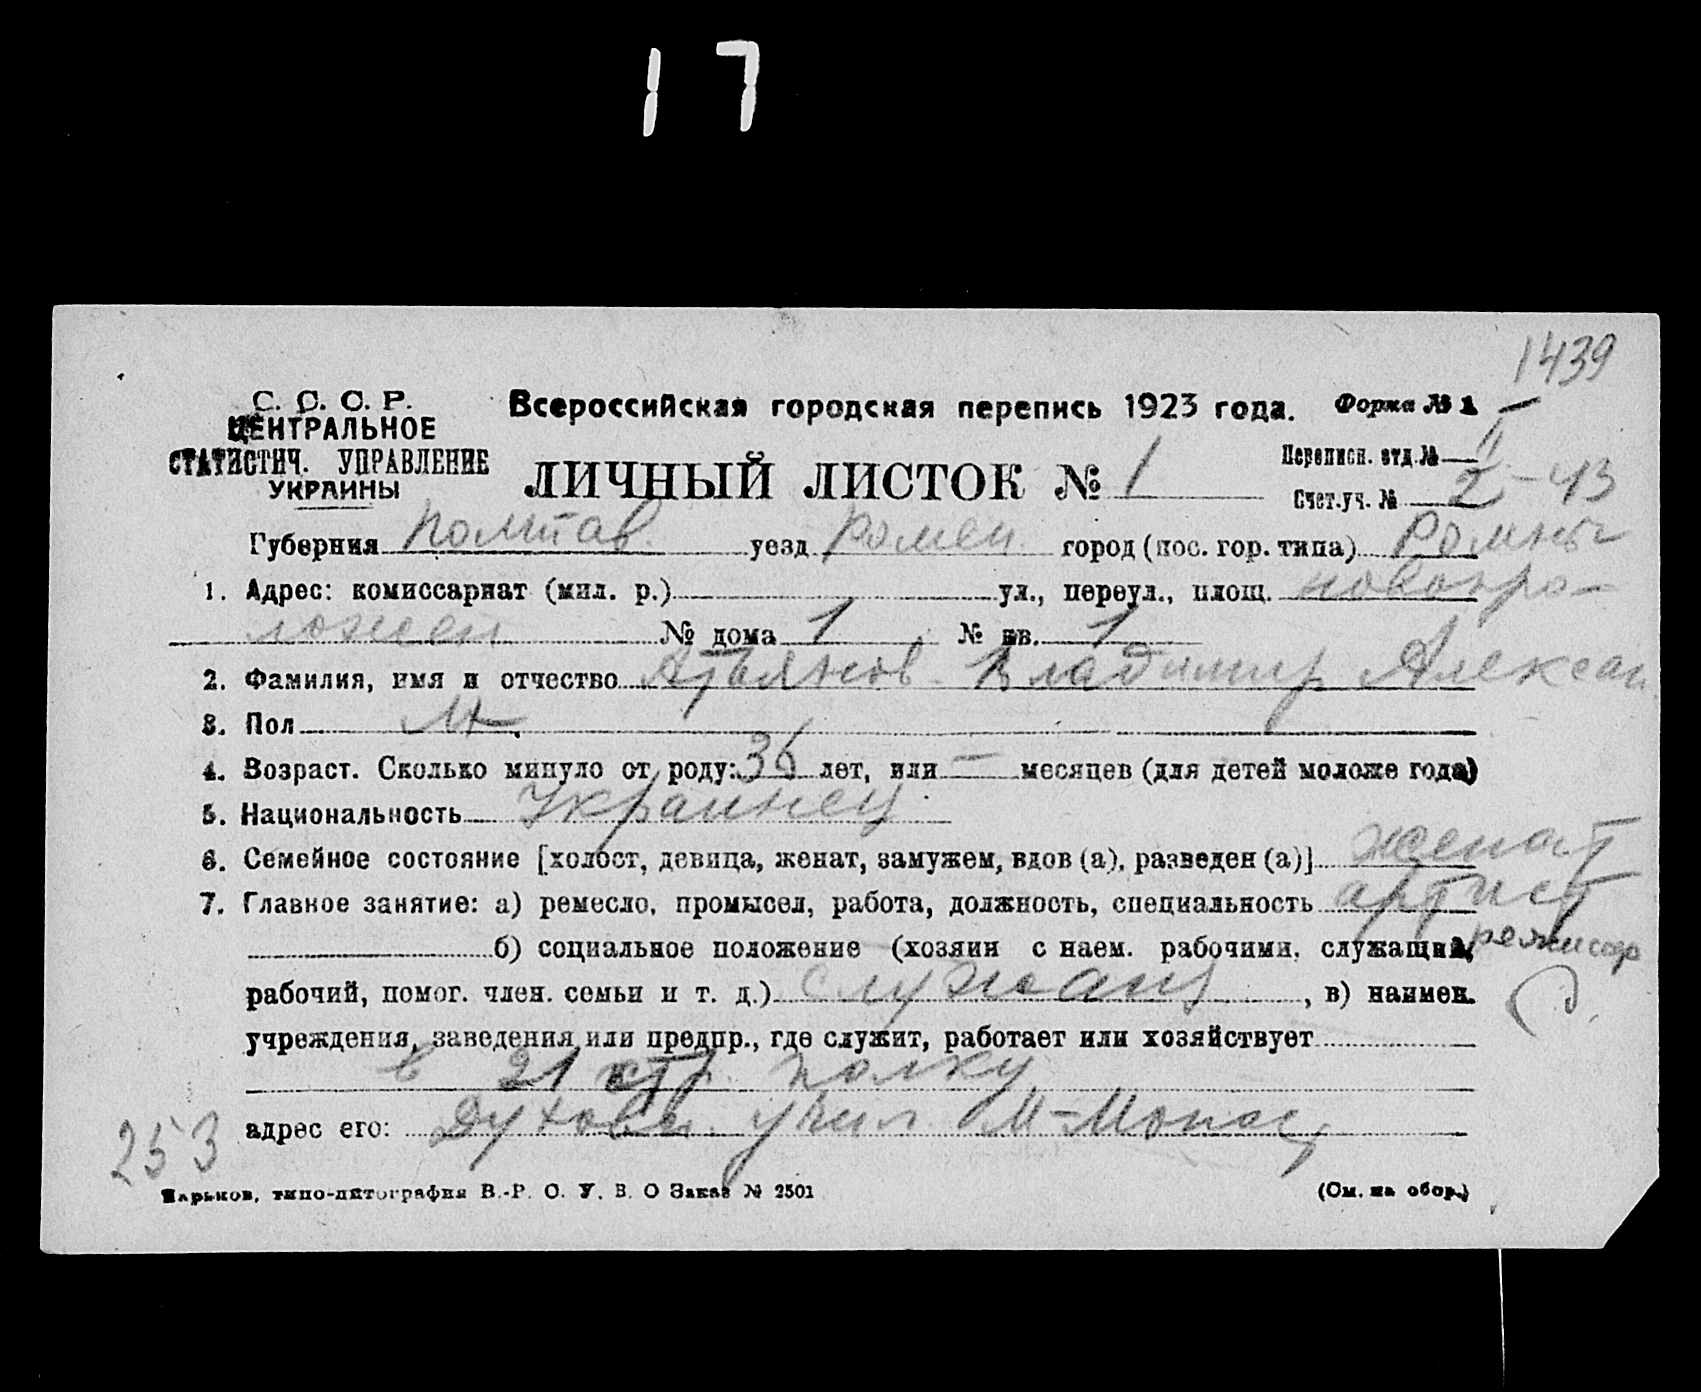 17
1439
С. С. С. Р.
ЦЕНТРАЛЬНОЕ
СТАТИСТИЧ. УПРАВЛЕНИЕ
УКРАИНЫ
Всероссийская городская перепись 1923 года.
Форма № 1
ЛИЧНЫЙ ЛИСТОК № 1
Переписн. отд. №
Счет. уч. № - 43
Губерния Полтав. уезд Ромен. город (пос. гор. типа) Ромны
1. Адрес: комиссариат (мил. р.) ул., переул., площ. новопро-
ложен № дома 1 № кв. 1
2. Фамилия, имя и отчество Владимир Алексан.
3. Пол М.
4. Возраст. Сколько минуло от роду: 36 лет, или — месяцев (для детей моложе года)
5. Национальность Украинец
6. Семейное состояние [холост, девица, женат, замужем, вдов (а), разведен (а)] женат
7. Главное занятие: а) ремесло, промысел, работа, должность, специальность артист
режисер
б) социальное положение (хозяин с наем. рабочими, служащий,
рабочий, помог. член. семьи и т. д.) служащ, в) наимен.
учреждения, заведения или предпр., где служит, работает или хозяйствует
в 21 стр. полку
адрес его: Духовн. учил.
253
Харьков, типо-литография В.-Р. О. У. В. О Заказ № 2501
(См. на обор.)